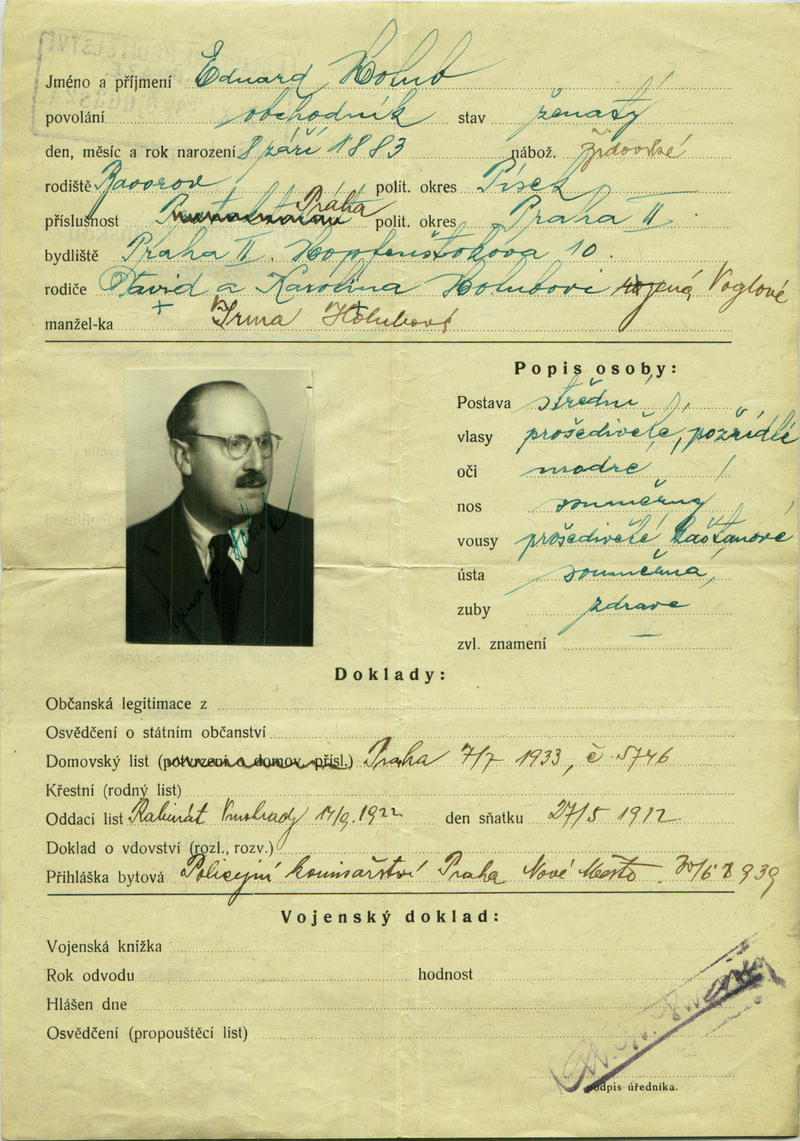 Jméno a příjmení Eduard Holub
povolání obchodník stav ženatý
den, měsíc a rok narození 8 září 1883 nábož. židovské
rodiště Bavorov polit. okres Písek
příslušnost Praha polit. okres Praha II
bydliště Praha II. Hopfenštokova 10.
rodiče David a Karolina Holubovi rozená Voglové
manžel-ka Irma Holubová
Popis osoby:
Postava střední
vlasy prošedivělé, pořídlé
oči modré
nos souměrný
vousy prošedivělé kaštanové
ústa souměrná
zuby zdravé
zvl. znamení —
Doklady:
Občanská legitimace z
Osvědčení o státním občanství
Domovský list (potvrzení o domov. přísl.) Praha 7/7 1933, č. 5746
Křestní (rodný list)
Oddací list Rabinát Vinohrady 14/9. 1922 den sňatku 27/5 1912.
Doklad o vdovství (rozl., rozv.)
Přihláška bytová Policejní komisařství Praha Nové Město 939
Vojenský doklad:
Vojenská knížka
Rok odvodu hodnost
Hlášen dne
Osvědčení (propouštěcí list)
podpis úředníka.